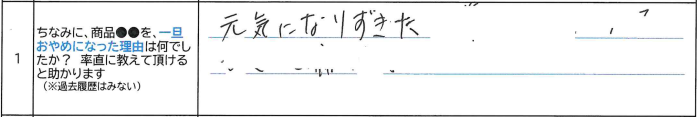 1
ちなみに、商品●●を、一旦
おやめになった理由は何でし
たか? 率直に教えて頂ける
と助かります
(※過去履歴はみない)
元気になりすぎた